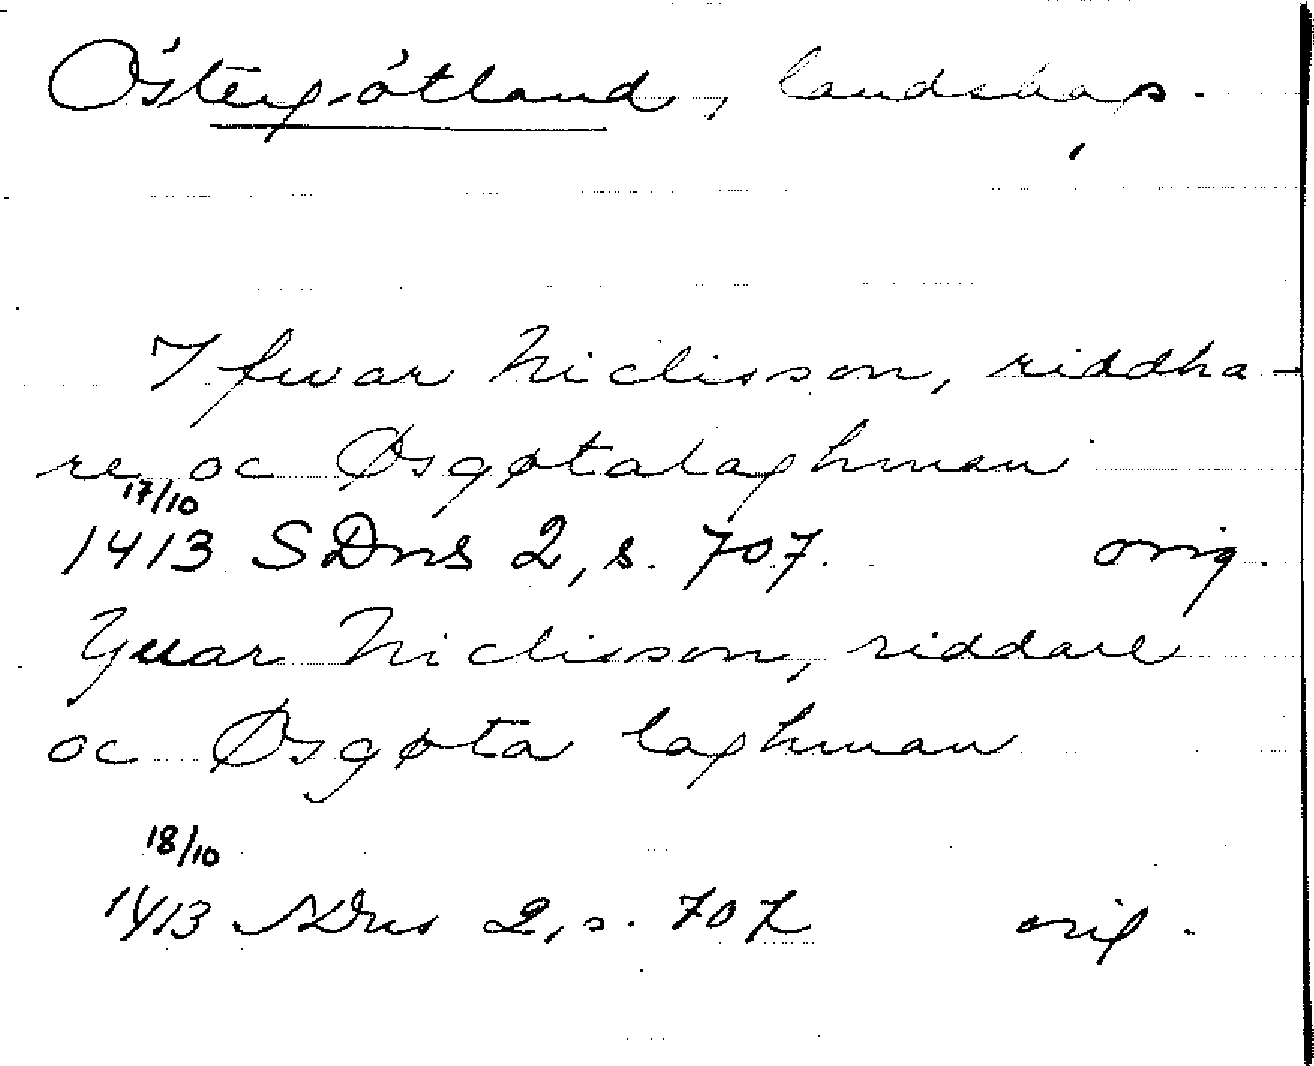 Östergötland, landskap.
Ifwar Niclisson, riddha-
re oc Øsgøtalaghman
17/10
1413 SDns 2, s. 707. orig.
Yuar Niclisson, riddare
oc Øsgøta laghman
18/10
1413 SDns 2, s. 707 orig.